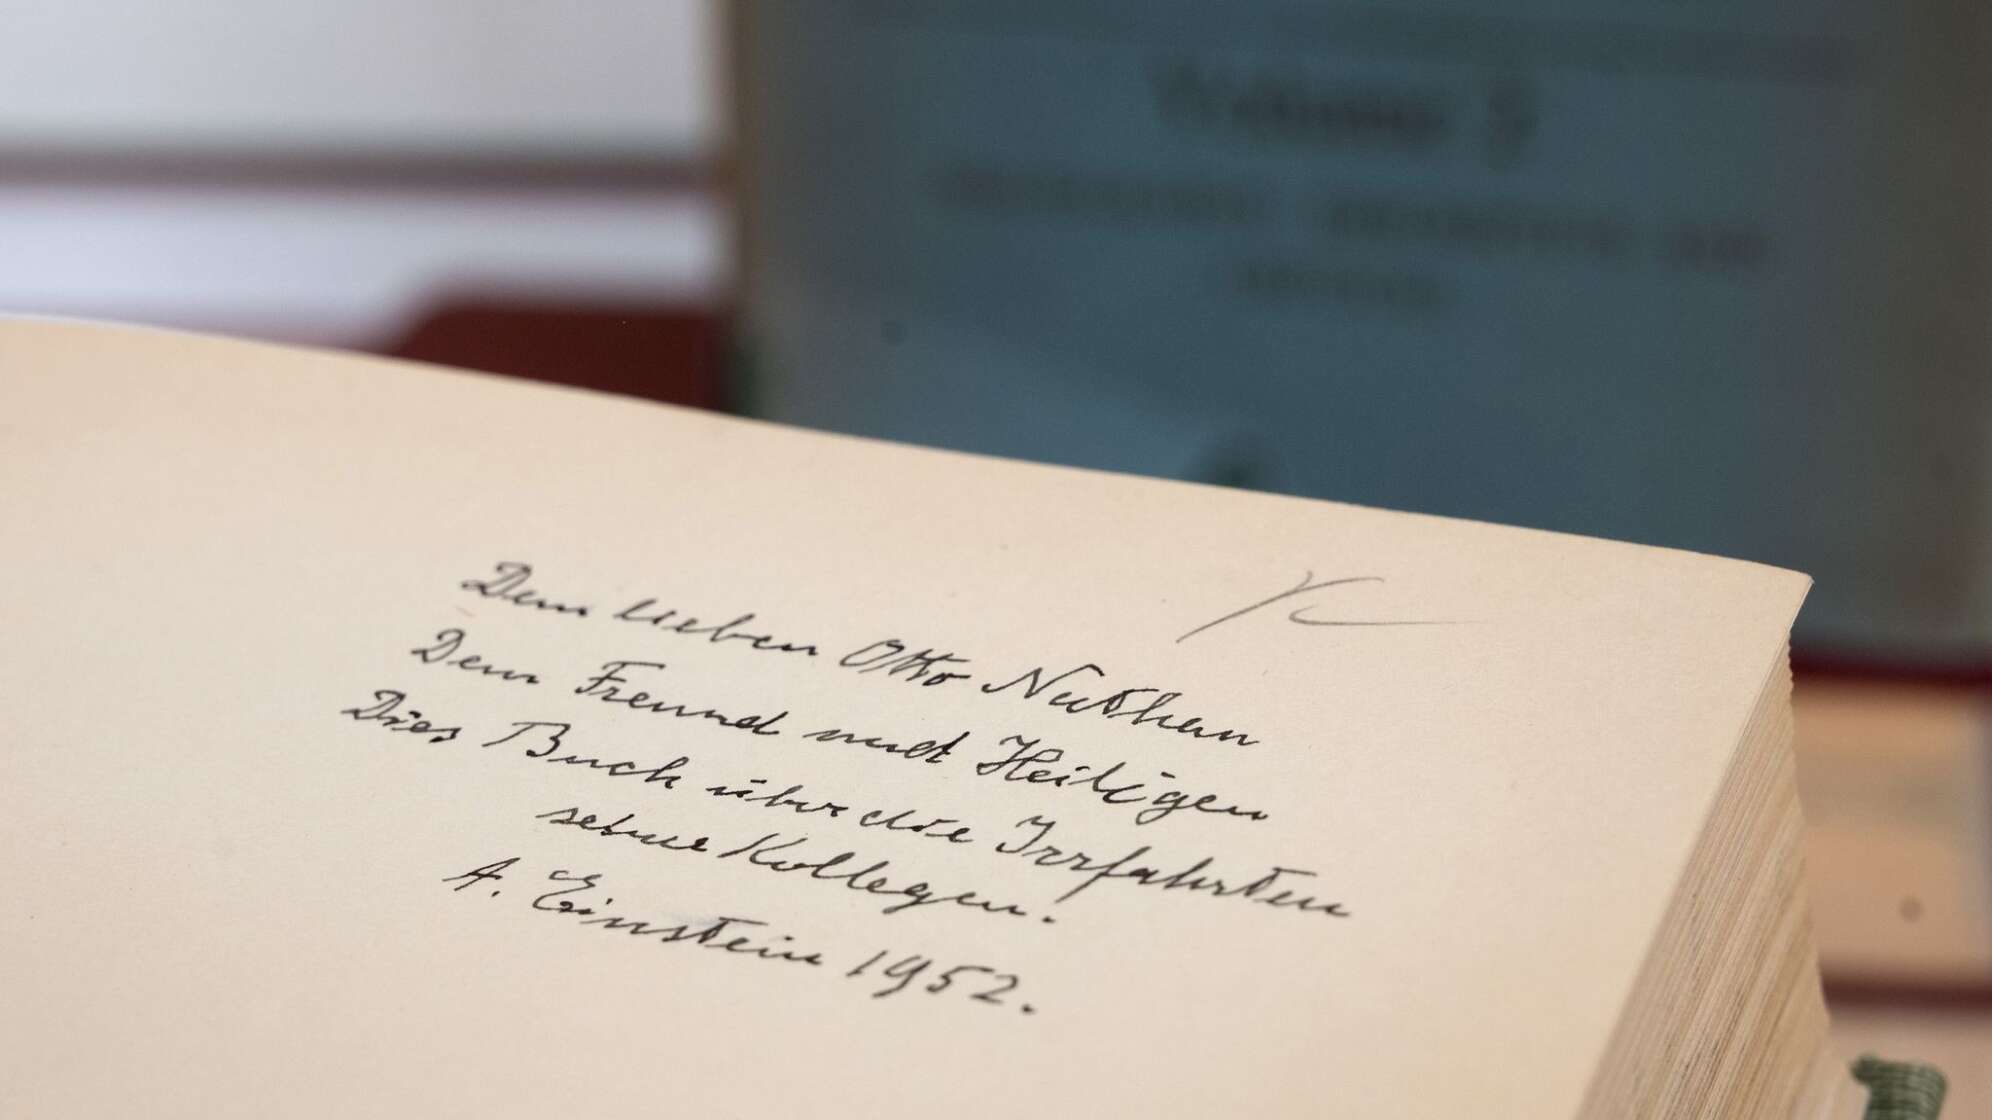 Volume 5
Dem lieben Otto Nathan
Dem Freund und Heiligen
Dies Buch über die Irrfahrten
seiner Kollegen.
A. Einstein 1952.